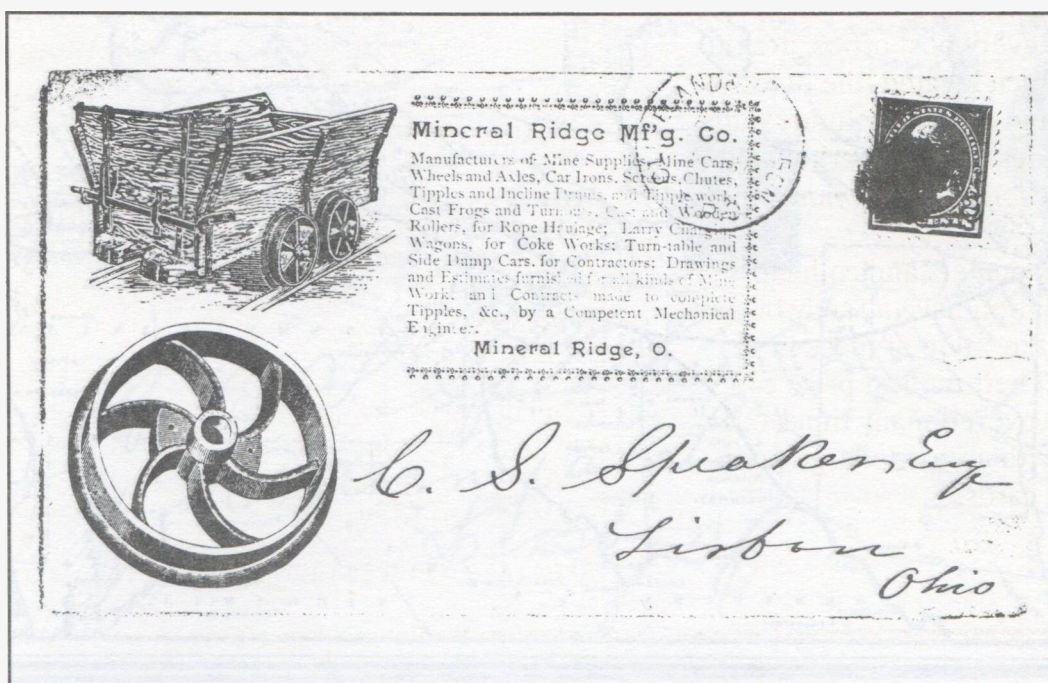 Mineral Ridge Mf'g. Co.
Manufacturers of Mine Supplies, Mine Cars,
Wheels and Axles, Car Irons. Screens, Chutes,
Tipples and Incline Drums, and Tipple work,
Cast Frogs and Turnouts, Cast and Wooden
Rollers, for Rope Haulage; Larry Charging
Wagons, for Coke Works; Turn-table and
Side Dump Cars. for Contractors; Drawings
and Estimates furnished for all kinds of Mine
Work, and Contracts made to complete
Tipples, &c., by a Competent Mechanical
Engineer.
Mineral Ridge, O.
UNITED STATES POSTAGE
C. S. Speaker, Esq
Lisbon
Ohio